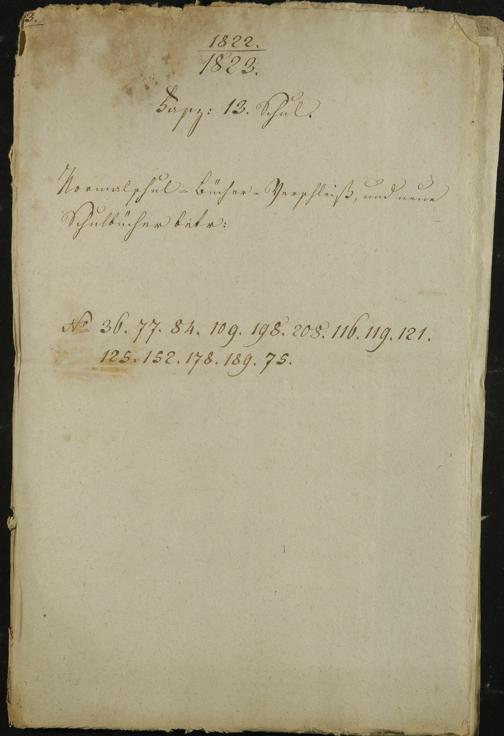 13.
1822.
1823.
Fasz: 13. Schul.
Normalschul-Bücher-Verschleiß, und neue
Schulbücher betr:
No 36. 77. 84. 109. 198. 208. 116. 119. 121.
125. 152. 178. 189. 75.